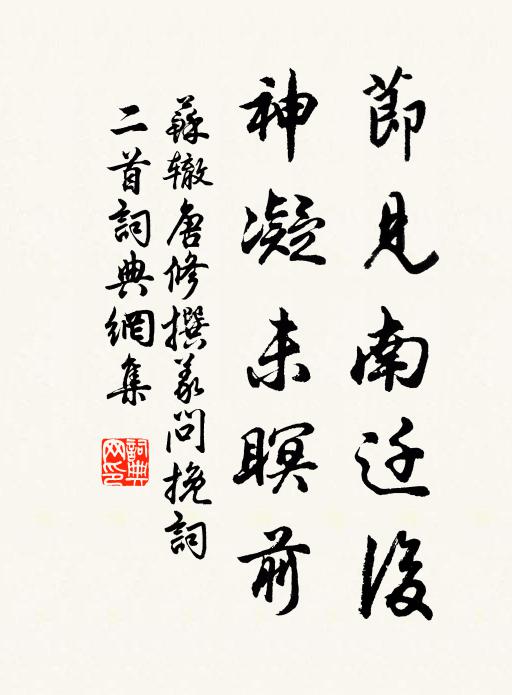 節見南迁後
神凝未瞑前
蘇辙唐修撰義問挽詞
二首詞典網集
詞典网印